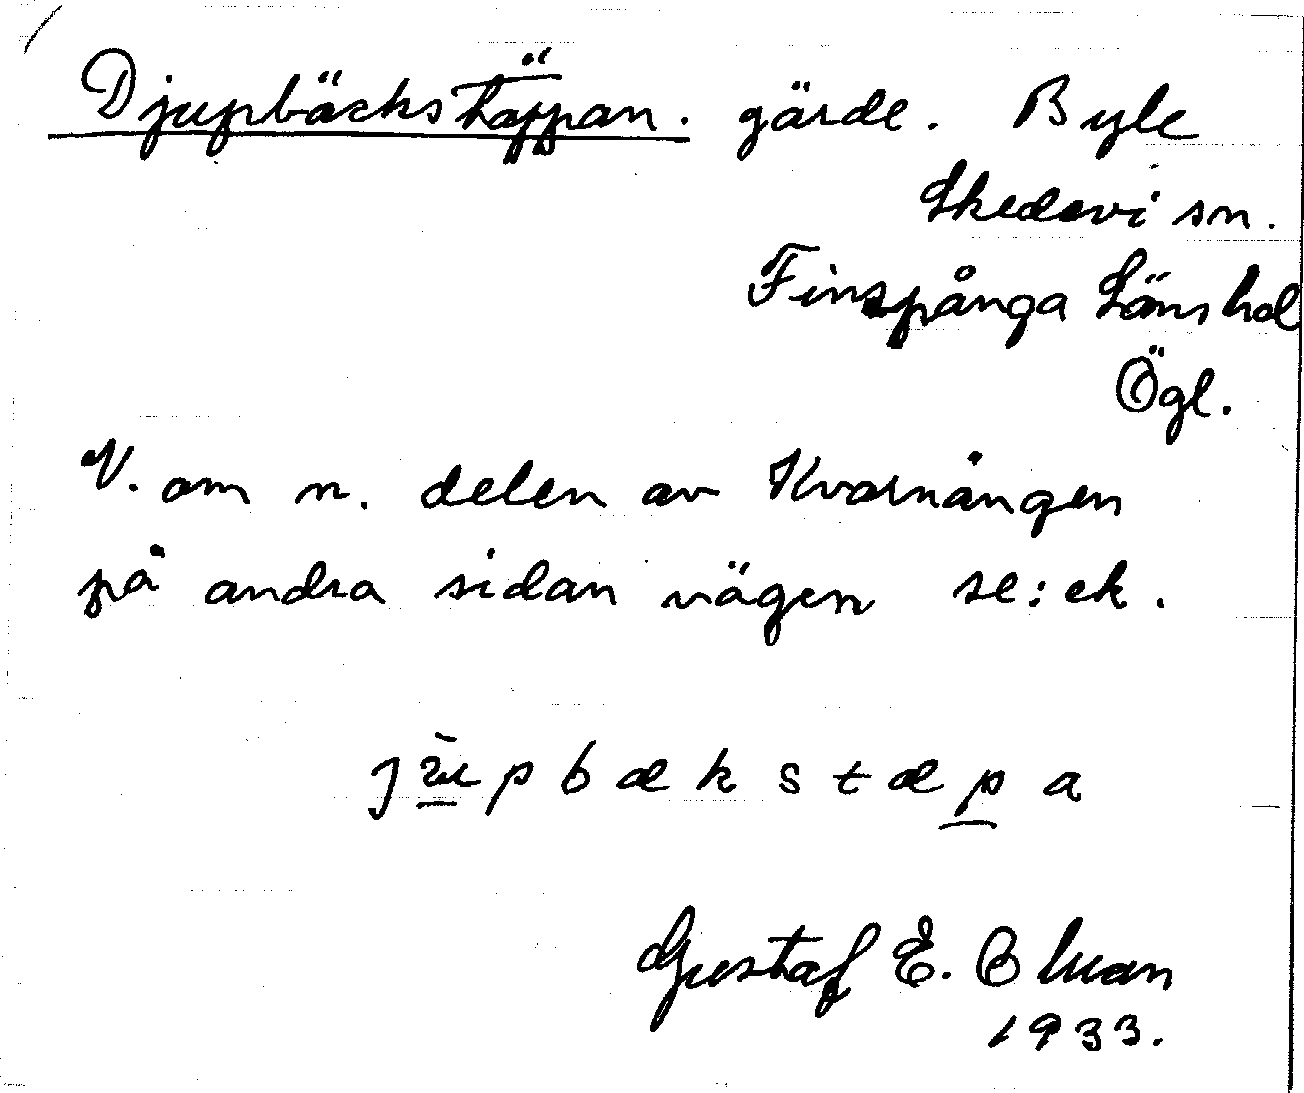 Djupbäckstäppan. gärde. Byle
Skedevi sn.
Finspånga Länshd
Ögl.
V. om n. delen av Kvarnängen
på andra sidan vägen se: ek.
pbækstæpa
Gustaf E.
1933.